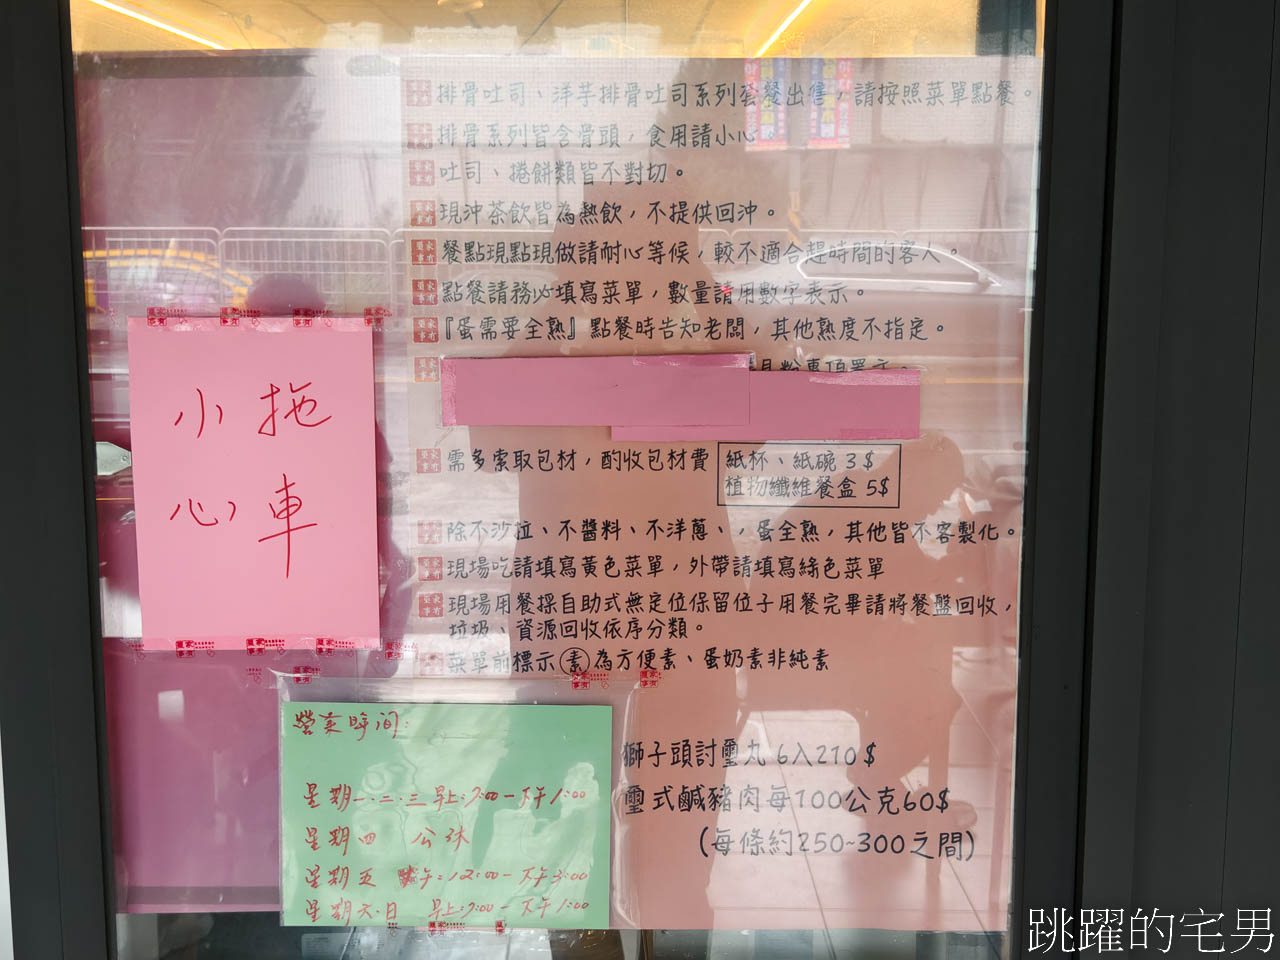 排骨吐司、洋芋排骨吐司系列套餐出售，請按照菜單點餐。
排骨系列皆含骨頭，食用請小心
吐司、捲餅類皆不對切。
現沖茶飲皆為熱飲，不提供回沖。
餐點現點現做請耐心等候，較不適合趕時間的客人。
點餐請務必填寫菜單，數量請用數字表示。
『蛋需要全熟』點餐時告知老闆，其他熟度不指定。
需多索取包材，酌收包材費
紙杯、紙碗 3$
植物纖維餐盒 5$
除不沙拉、不醬料、不洋蔥、，蛋全熟，其他皆不客製化。
現場吃請填寫黃色菜單，外帶請填寫綠色菜單
現場用餐採自助式無定位保留位子用餐完畢請將餐盤回收，
垃圾、資源回收依序分類。
菜單前標示素為方便素、蛋奶素非純素
獅子頭討璽丸 6入210$
璽式鹹豬肉每100公克60$
(每條約250~300之間)
拖車
小心
營業時間：
星期一.二.三 早上:7:00－下午1:00
星期四 公休
星期五 中午:12:00－下午3:00
星期六.日 早上:7:00－下午1:00
跳躍的宅男